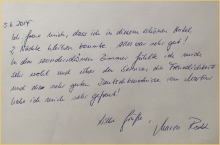 5.6.2014
Ich freue mich, dass ich in diesem schönen Hotel,
2 Nächte bleiben konnte. war sehr gut!
In den wunderschönen Zimmer fühlte ich mich
sehr wohl und über den Service, die Freundlichkeit
und das sehr guten
habe ich mich sehr gefreut!
Liebe Grüße,
Marion